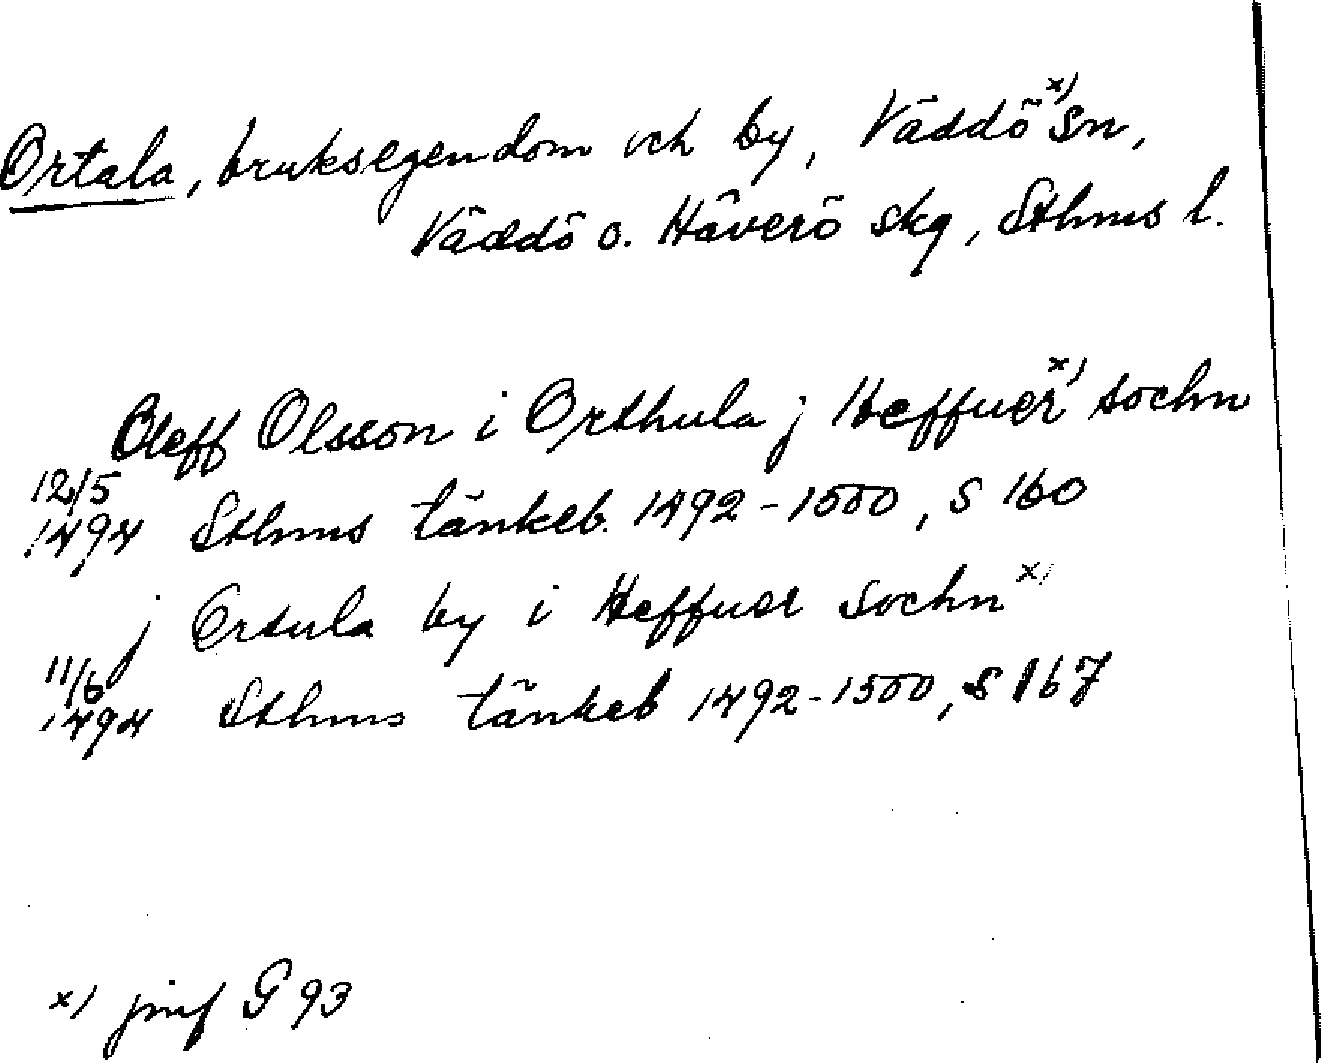 Ortala, bruksegendom och by, Väddö x) sn,
Väddö o. Häverö skg, Sthms l.
Oleff Olsson i Orthula j Heffuer x) sochn
12/5 1494 Sthms tänkeb. 1492-1500, s 160
j Ortula by i Heffuer sochn x)
11/6 1494 Sthms tänkeb 1492-1500, s 167
x) jmf G 93